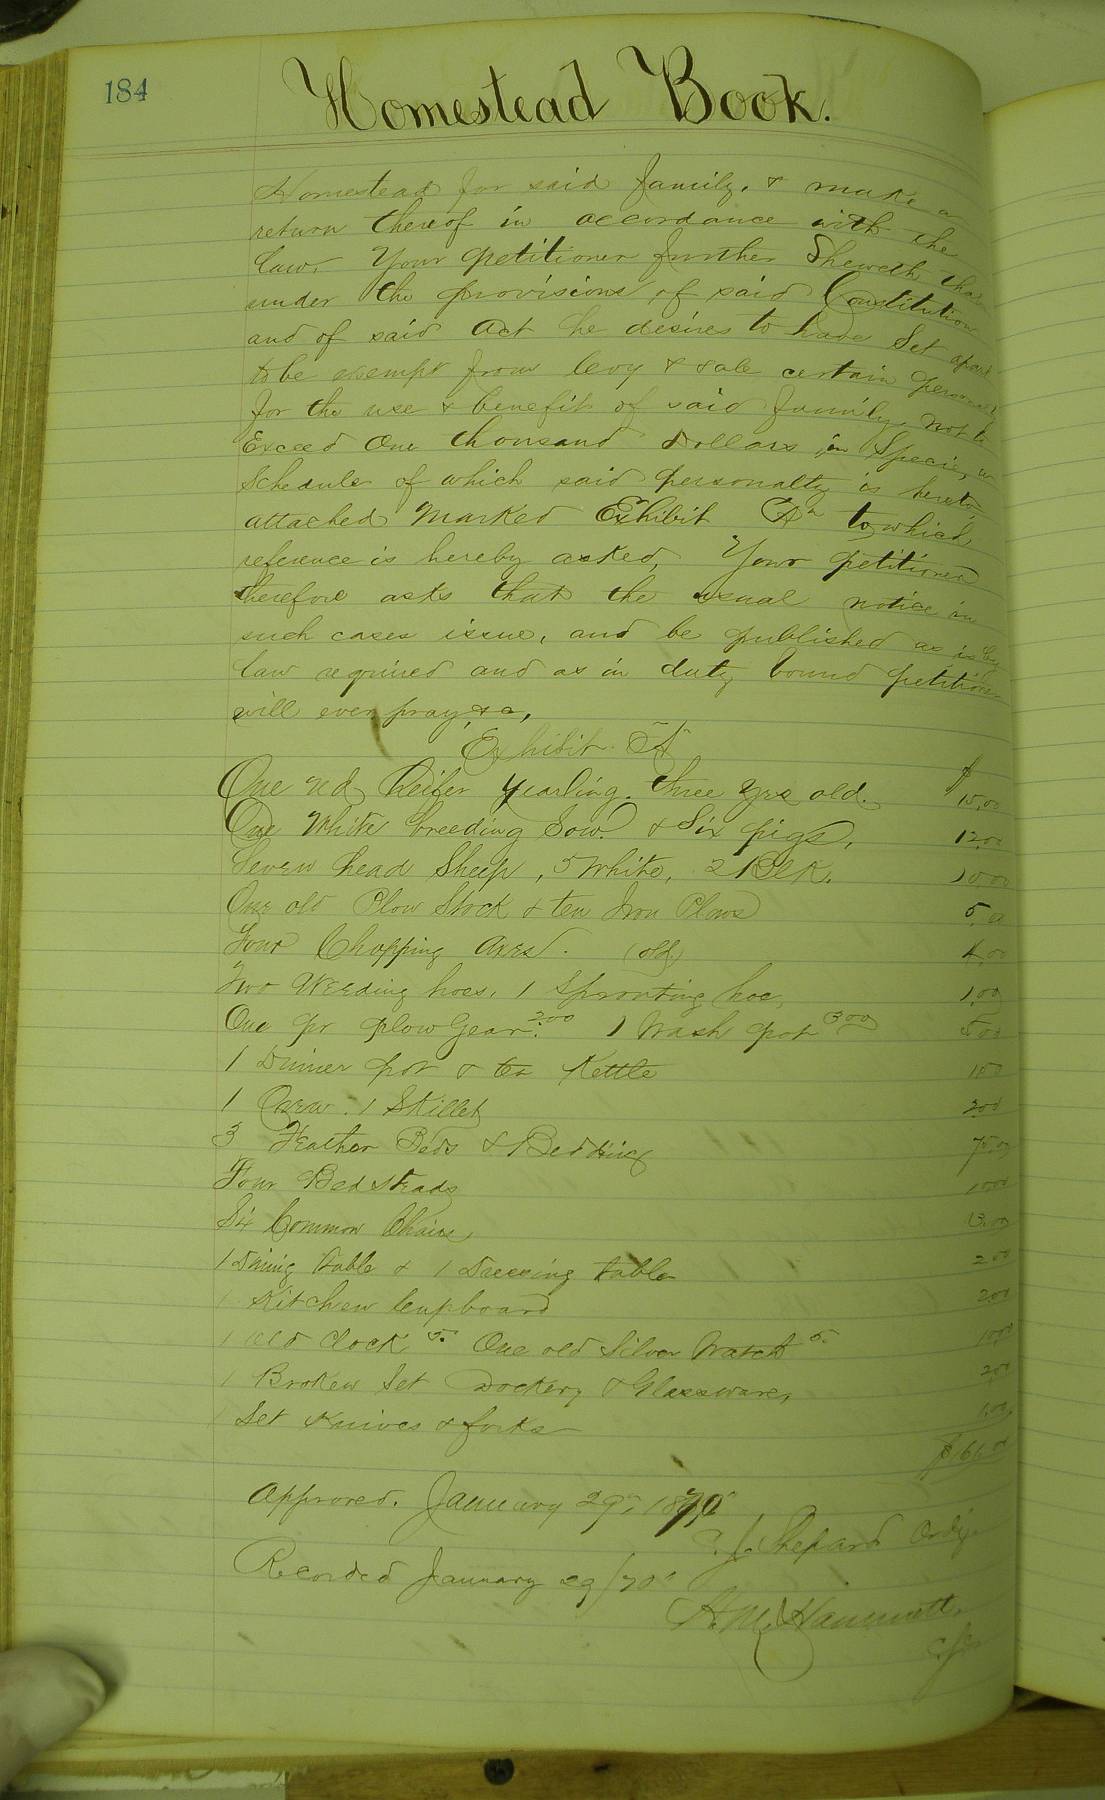 184
Homestead Book.
Homestead for said family, & make a
return thereof in accordance with the
law. Your petitioner further Sheweth that
under the provisions of said Constitution
and of said Act he desires to have Set apart
to be exempt from levy & sale certain personalty
for the use & benefit of said family, not to
Exceed One thousand Dollars in Specie, a
Schedule of which said personalty is hereto
attached Marked Exhibit "A" to which
reference is hereby asked, Your petitioner
therefore asks that the usual notice in
such cases issue, and be published as is by
law required and as in duty bound petitioner
will ever pray, &c,
Exhibit "A"
One red Heifer Yearling. three yrs old. $15.00
One White breeding Sow. & Six pigs, 12.00
Seven head Sheep, 5 White, 2 Blk. 10.00
One old Plow Stock & ten Iron Plows 5.00
Four Chopping Axes. (old) 4.00
Two Weeding hoes, 1 Sprouting hoe, 1.00
One pr plow Gear. 2.00 1 Wash pot 3.00 5.00
1 Dinner pot & tea Kettle
1 Oven. 1 Skillet 2.00
3 Feather Beds & Bedding 75.00
Four Bedsteads 10.00
Six Common Chairs, 3.00
1 Dining table & 1 Dressing table 2.00
1 Kitchen Cupboard 2.00
1 old Clock 5. One old Silver Watch 5. 10.00
1 Broken Set Dockery & Glassware, 2.00
1 Set Knives & forks 1.00
$166.00
Approved. January 29th, 1870
J. Shepard Ordy.
Recorded January 29/70
H. M. Hammett,